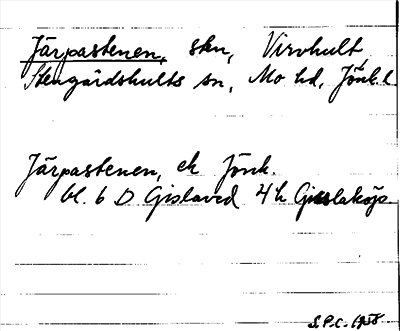 Järpastenen, sten, Virvhult
Stengårdshults sn, Mo hd, Jönk. l
Järpastenen, ek Jönk.
bl. 6 D Gislaved 4 h Gisslaköp
S.P.C. 1958